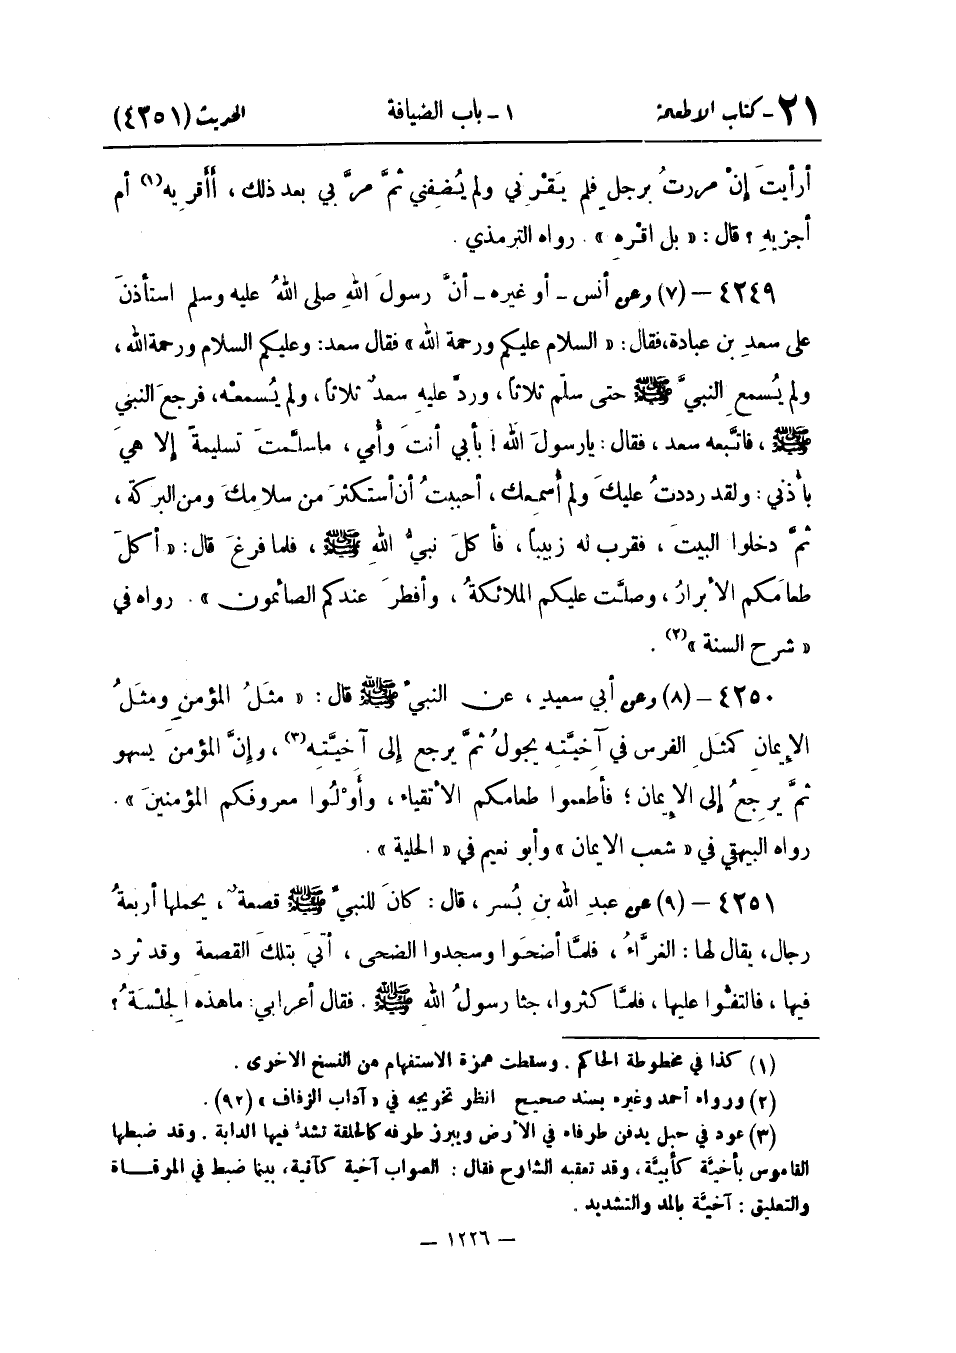 ٢١ - كتاب الاطعمة ١ - باب الضيافة الحديث (٤٢٥١)
أرأيتَ إنْ مررتُ برجلٍ فلم يَقْرِني ولم يُضِفني ثمَّ مرَّ بي بعد ذلك ، أَأَقريه(١) أم
أجزيهِ ؟ قال : « بل اقْرِه » . رواه الترمذي .
٤٢٤٩ – (٧) وعن أنس - أو غيره - أنَّ رسولَ اللهِ صلى اللهُ عليه وسلم استأذنَ
على سعدِ بن عبادة،فقال: « السلام عليكم ورحمة الله » فقال سعد: وعليكم السلام ورحمةالله ،
ولم يُسمعِ النبيَّ ﷺ حتى سلّم ثلاثاً ، وردَّ عليه سعدٌ ثلاثاً ، ولم يُسمعْه، فرجعَ النبي
ﷺ ، فاتَّبعه سعد ، فقال : يارسولَ الله! بأبي أنتَ وأُمي ، ماسلَّمتَ تسليمةً إلا هيَ
بأُذني : ولقد رددتُ عليكَ ولم أُسمِعك ، أحببتُ أن أستكثرَ من سلامِكَ ومن البركة ،
ثمَّ دخلوا البيتَ ، فقرب له زبيباً ، فأكلَ نبيُّ اللهِ ﷺ ، فلما فرغَ قال: « أكلَ
طعامَكم الأبرارُ ، وصلَّت عليكم الملائكةُ ، وأفطرَ عندكم الصائمون » . رواه في
« شرح السنة »(٢) .
٤٢٥٠ – (٨) وعن أبي سعيدٍ ، عن النبيِّ ﷺ قال : « مثَلُ المؤمنِ ومثَلُ
الإيمانِ كمثَلِ الفرس في آخيَّتِه يجولُ ثمَّ يرجع إلى آخيَّتِه(٣) ، وإنَّ المؤمنَ يسهو
ثمَّ يرجعُ إلى الإيمان ؛ فأطعموا طعامكم الأتقياء ، وأَوْلُوا معروفكم المؤمنينَ » .
رواه البيهقي في « شعب الايمان » وأبو نعيم في « الحلية » .
٤٢٥١ – (٩) عن عبدِ الله بنِ بُسر ، قال : كانَ للنبيِّ ﷺ قصعةٌ ، يحملها أربعةُ
رجال، يقال لها : الغرَّاءُ ، فلمَّا أضحَوا وسجدوا الضحى ، أتيَ بتلكَ القصعة وقد ثرد
فيها ، فالتفُّوا عليها ، فلمَّا كثروا، جثا رسولُ الله ﷺ . فقال أعرابي: ماهذه الجِلْسَةُ ؟
(١) كذا في مخطوطة الحاكم . وسقطت همزة الاستفهام من النسخ الاخرى .
(٢) ورواه أحمد وغيره بسند صحيح انظر تخريجه في « آداب الزفاف » (٩٢) .
(٣) عود في حبل يدفن طرفاه في الأرض ويبرز طرفه كالحلقة تشدُّ فيها الدابة . وقد ضبطها
القاموس بأخيَّة كأبيَّة ، وقد تعقبه الشارح فقال : الصواب آخية كآنية، بينما ضبط في المرقاة
والتعليق : آخيَّة بالمد والتشديد .
– ١٢٢٦ –